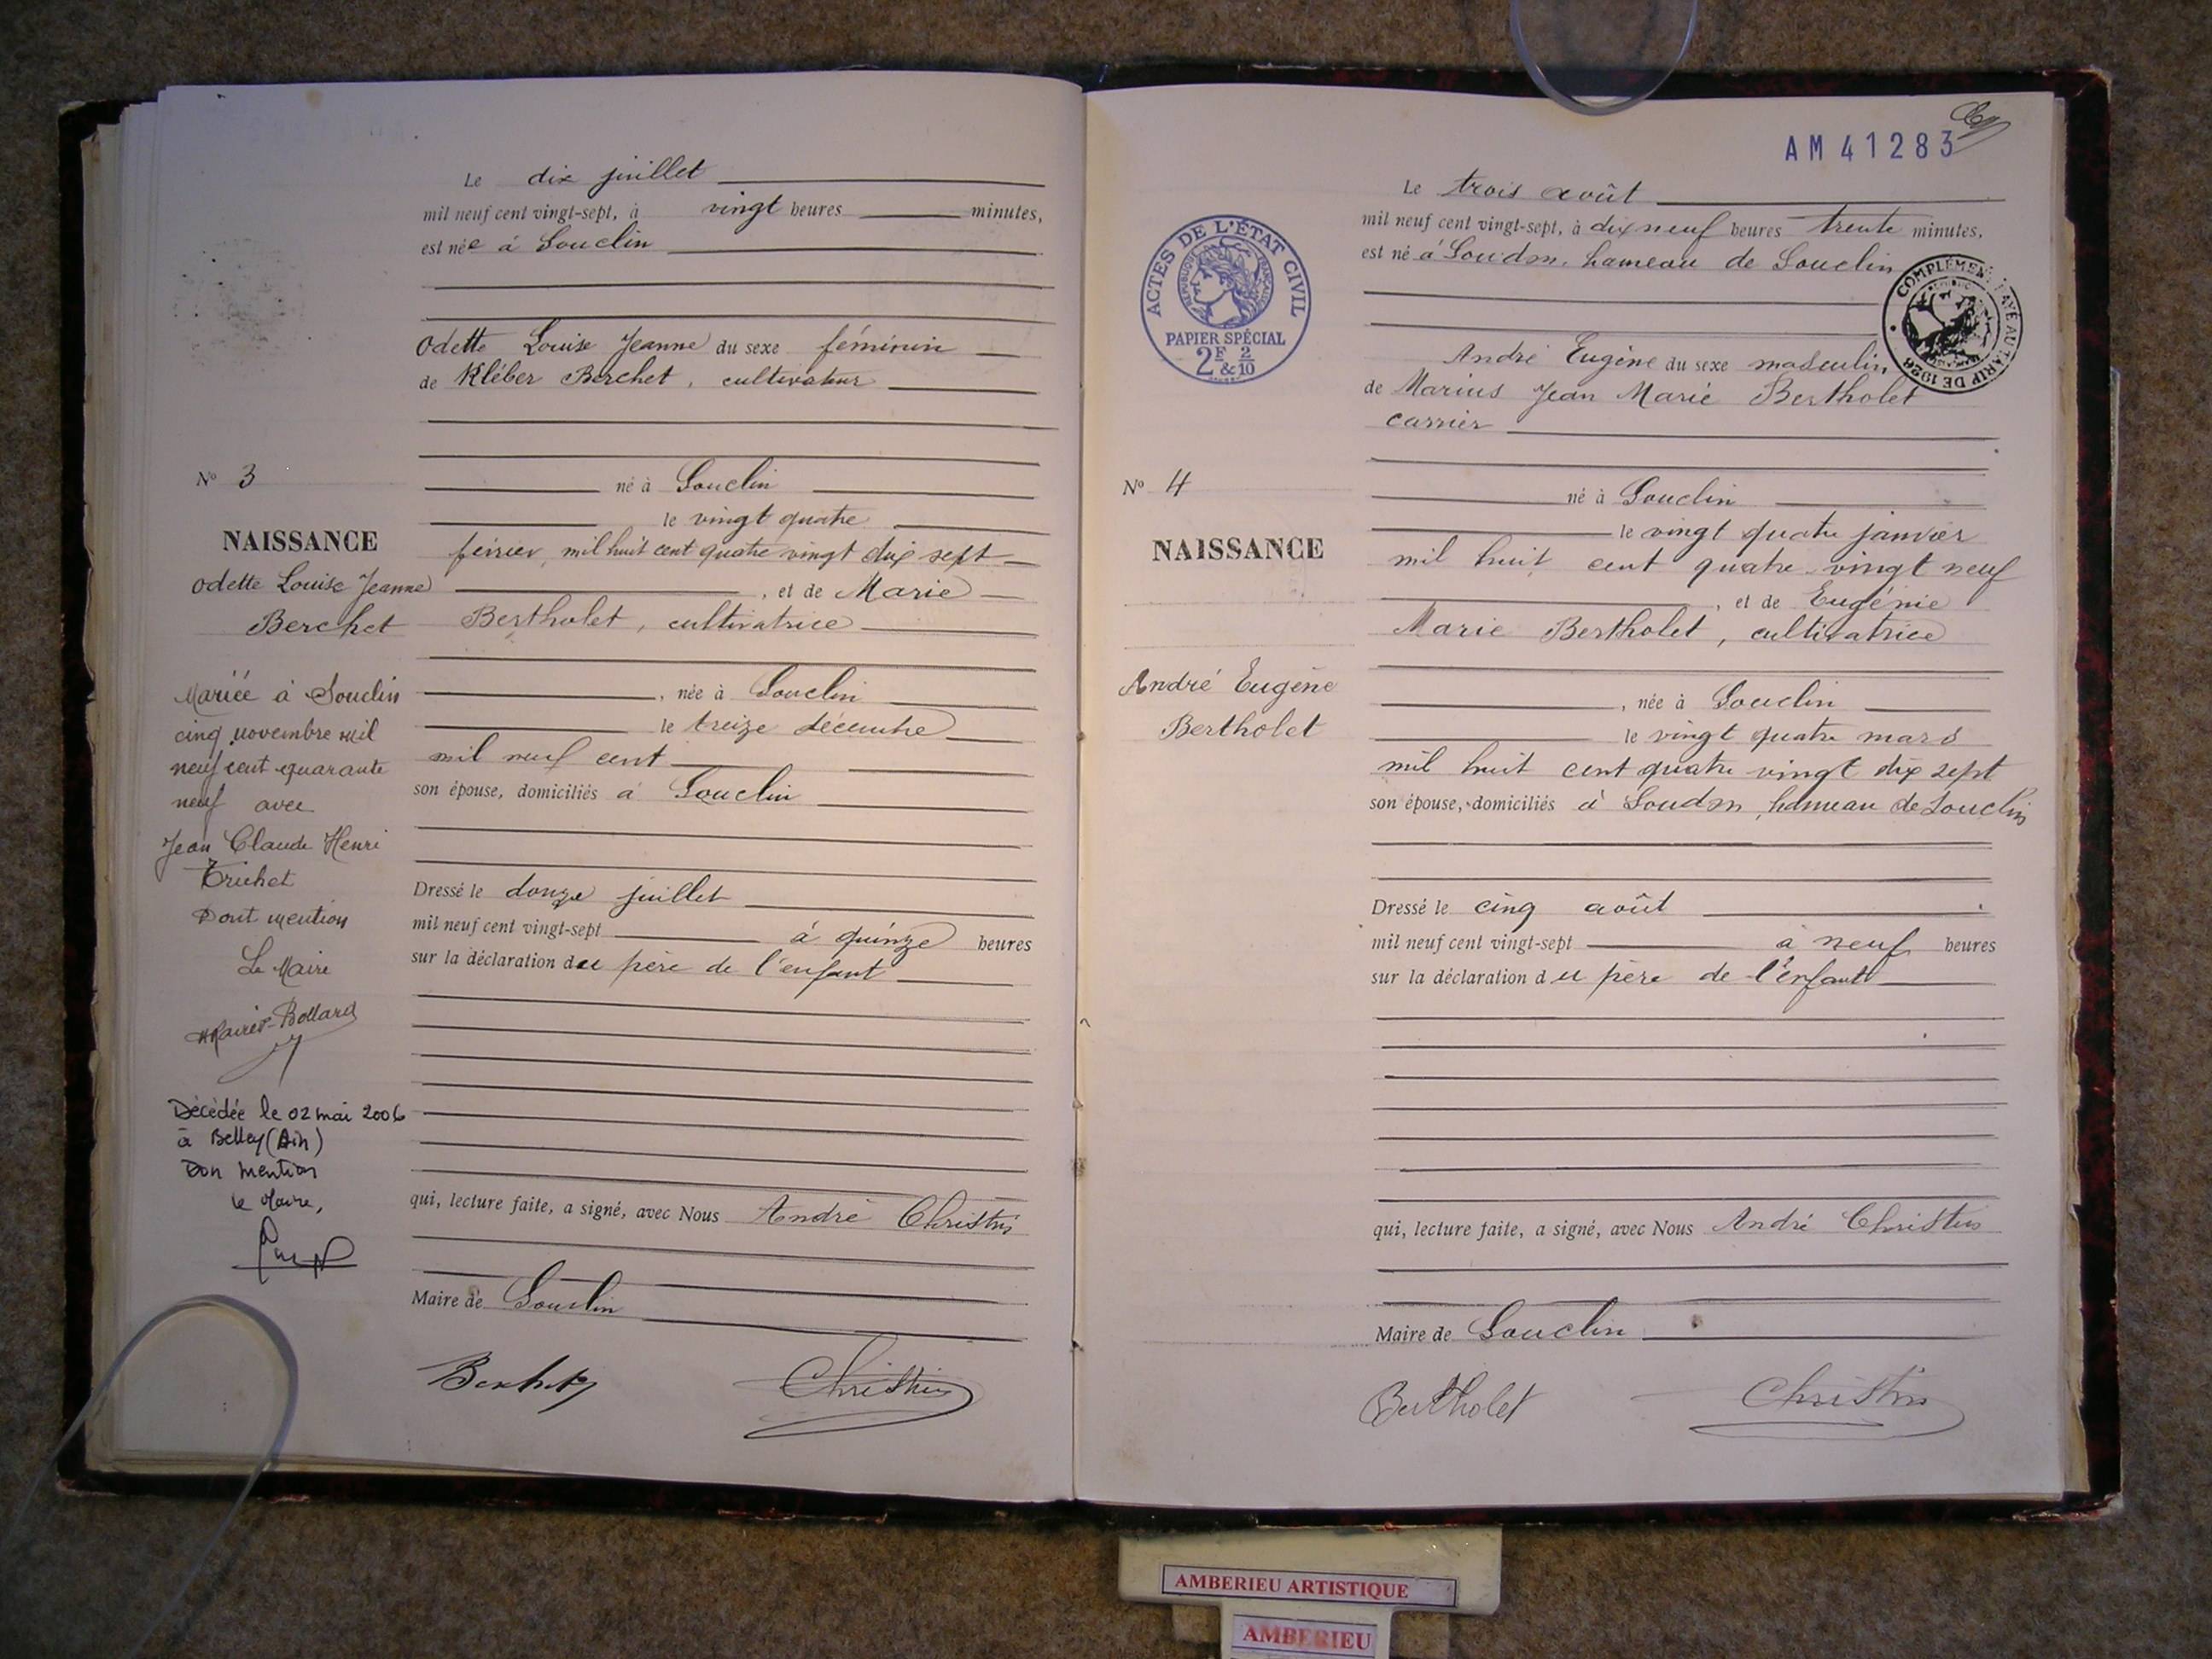 Le dix juillet
mil neuf cent vingt-sept, à vingt heures minutes,
est née à Souclin
Odette Louise Jeanne du sexe féminin
de Kléber Berchet, cultivateur
né à Souclin
le vingt quatre
février, mil huit cent quatre vingt dix sept
, et de Marie
Bertholet, cultivatrice
, née à Souclin
le treize décembre
mil neuf cent
son épouse, domiciliés à Souclin
Dressé le douze juillet
mil neuf cent vingt-sept à quinze heures
sur la déclaration du père de l'enfant
qui, lecture faite, a signé, avec Nous André Christin
Maire de Souclin
Berchet
Christin
No 3
NAISSANCE
Odette Louise Jeanne
Berchet
Mariée à Souclin
cinq novembre mil
neuf cent quarante
neuf avec
Jean Claude Henri
Trichet
Dont mention
Le Maire
Décédée le 02 mai 2006
à Belley (Ain)
Don mention
le Maire,
AM 41283
ACTES DE L'ÉTAT CIVIL
RÉPUBLIQUE FRANÇAISE
PAPIER SPÉCIAL
2F & 2/10
COMPLÉMENT PAYÉ AU TARIF DE 1926
Le trois août
mil neuf cent vingt-sept, à dix neuf heures trente minutes,
est né à Soudon, hameau de Souclin
André Eugène du sexe masculin
de Marius Jean Marie Bertholet
carrier
né à Souclin
le vingt quatre janvier
mil huit cent quatre-vingt neuf
, et de Eugénie
Marie Bertholet, cultivatrice
, née à Souclin
le vingt quatre mars
mil huit cent quatre vingt dix sept
son épouse, domiciliés à Soudon, hameau de Souclin
Dressé le cinq août
mil neuf cent vingt-sept à neuf heures
sur la déclaration du père de l'enfant
qui, lecture faite, a signé, avec Nous André Christin
Maire de Souclin
Bertholet
Christin
No 4
NAISSANCE
André Eugène
Bertholet
AMBERIEU ARTISTIQUE
AMBERIEU